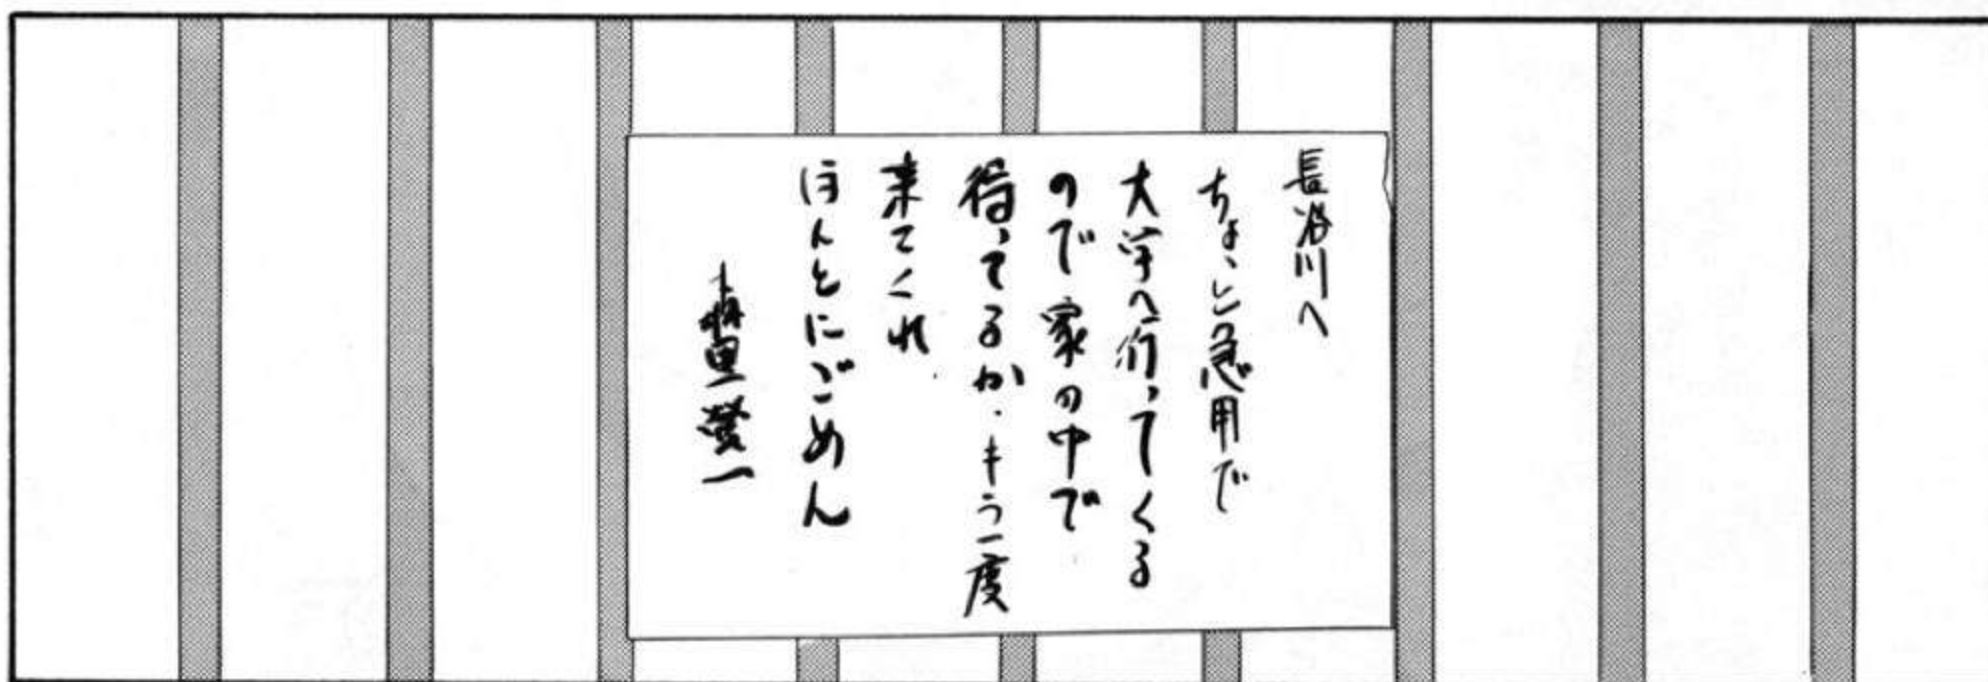 長谷川へ
ちょっと急用で
大学へ行ってくる
ので家の中で
待ってるか、もう一度
来てくれ
ほんとにごめん
一